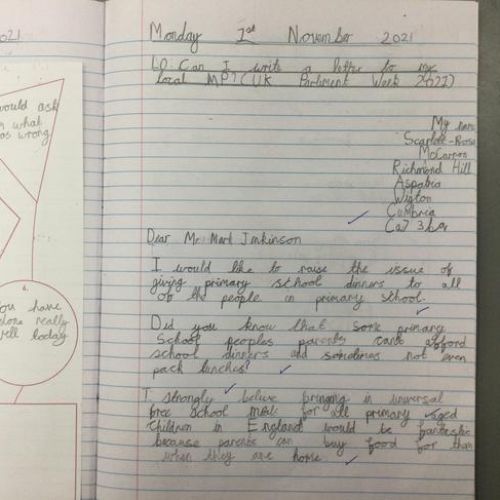 2021
would ask
what
was wrong
6.
You have
done really
well today
Monday 1st November 2021
LO: Can I write a letter to my
local MP? (UK Parliment Week 2021)
My
Scarlett-Rose
Richmond Hill
Aspatria
Wigton
Cumbria
Dear Mr Mark Jenkinson
I would like to raise the issue of
giving primary school dinners to all
of the people in primary school.
Did you know that some primary
School peoples parents cant afford
school dinners and sometimes not even
pack lunches!
I strongly belive bringing in universal
free school meals for all primary aged
Children in England would be fantastic
because parents can buy food for them
when they are home